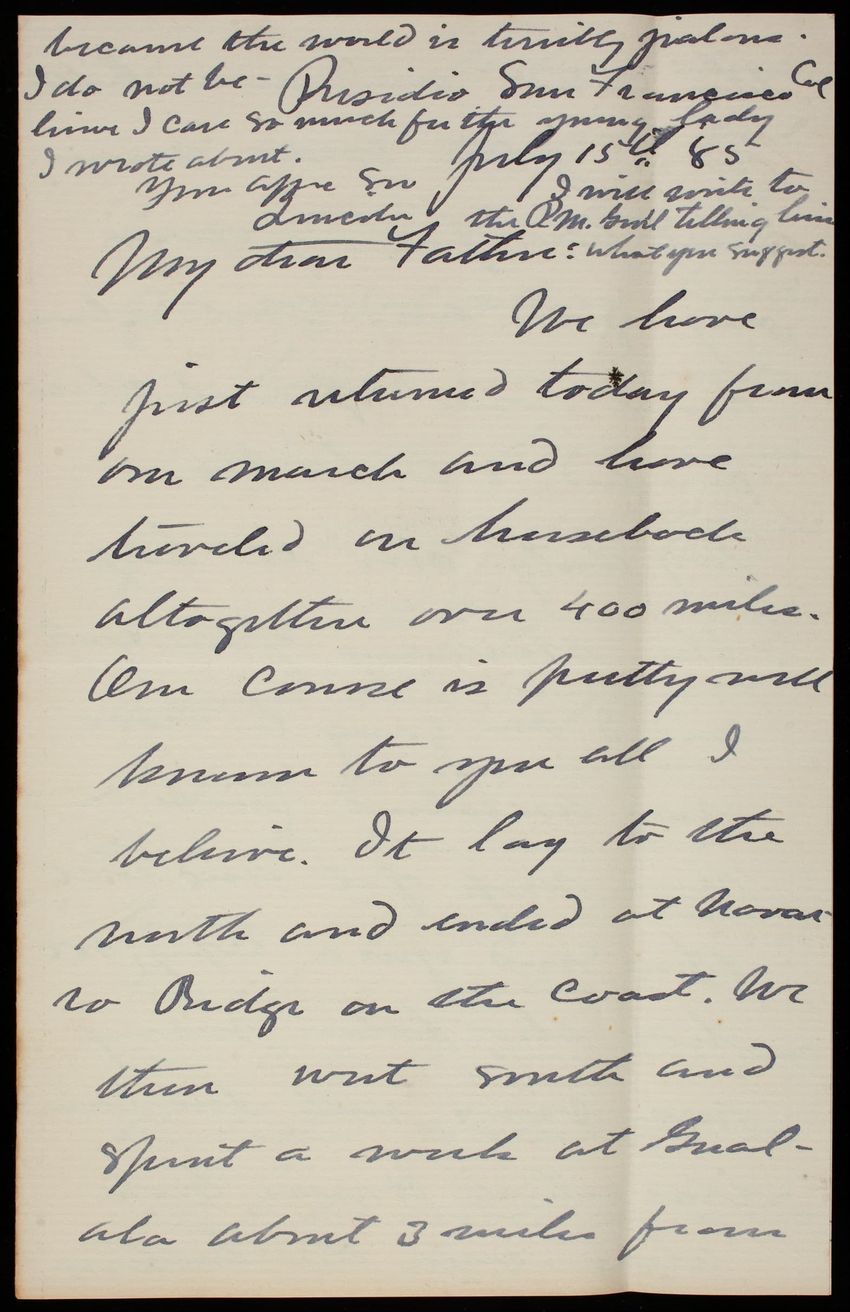 because the world is terribly jealous.
I do not be-
lieve I care so much for the young lady
I wrote about.
Your affe son
Lincoln
Presidio San Francisco Cal
July 15th 85
I will write to
the Q.M. Genl telling him
what you suggest.
My dear Father:
We have
just returned today from
our march and have
traveled on horseback
altogether over 400 miles.
Our course is pretty well
known to you all I
believe. It lay to the
north and ended at Navar-
ro Ridge on the coast. We
then went south and
spent a week at Gual-
ala about 3 miles from